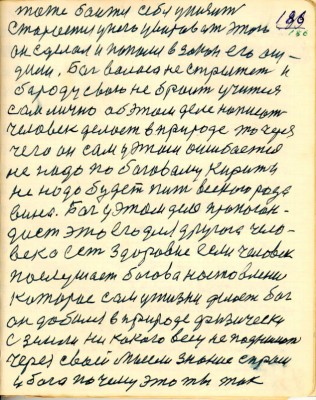 186
тоже боитси себя унизит
старается у него убитоват этого
он сделал и попали в закон его осу-
дили. Бог волоса не стрыжет и
бароду свою не броит учится
сам лично об этом деле написат
человек делает в природе то через
чего он сам у этом ошибается
не надо по боговому курить
не надо будет пит всякого рода
вина. Бог у этом деле пропоган-
даст это его для другога чело-
века ест здоровие если человек
послушает богова наставления
которое сам у жизни делает бог
он добился в природе физически
с земли никакого весу не поднимат
через свою мысль знание спроси
у бога почему это ты так